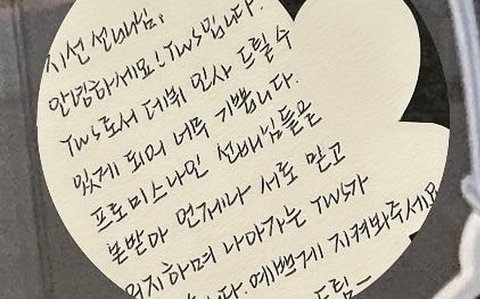 지선 선배님,
안녕하세요! TWS입니다.
TWS로서 데뷔 인사 드릴 수
있게 되어 너무 기쁩니다.
프로미스나인 선배님들을
본받아 언제나 서로 믿고
의지하며 나아가는 TWS가
예쁘게 지켜봐주세요
드림-